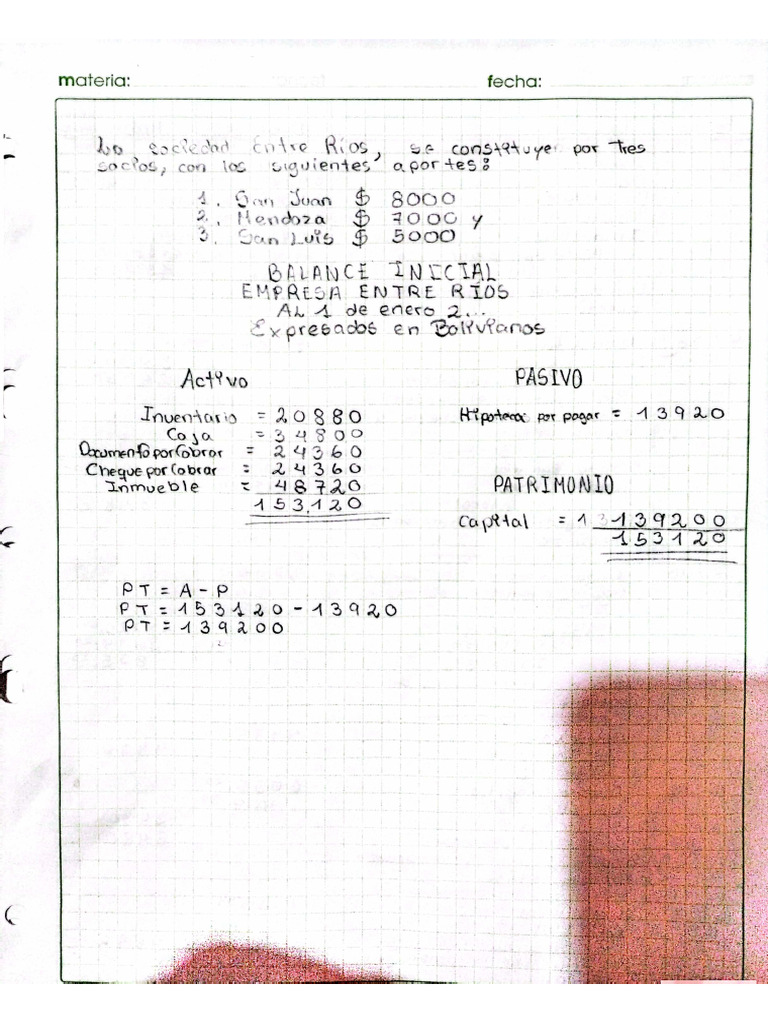 materia: fecha:
La sociedad Entre Ríos, se constituye por Tres
socios, con los siguientes aportes:
1. San Juan $ 8000
2. Mendoza $ 7000 y
3. San Luis $ 5000
BALANCE INICIAL
EMPRESA ENTRE RÍOS
AL 1 de enero 2...
Expresados en Bolivianos
Activo
Inventario = 20880
Caja = 34800
Documento por Cobrar = 24360
Cheque por Cobrar = 24360
Inmueble = 48720
153.120
PASIVO
Hipoteca por pagar = 13920
PATRIMONIO
Capital = 139200
153120
PT = A - P
PT = 153120 - 13920
PT = 139200